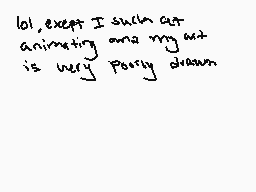 lol, except I such at
animating and my art
is very poorly drawn